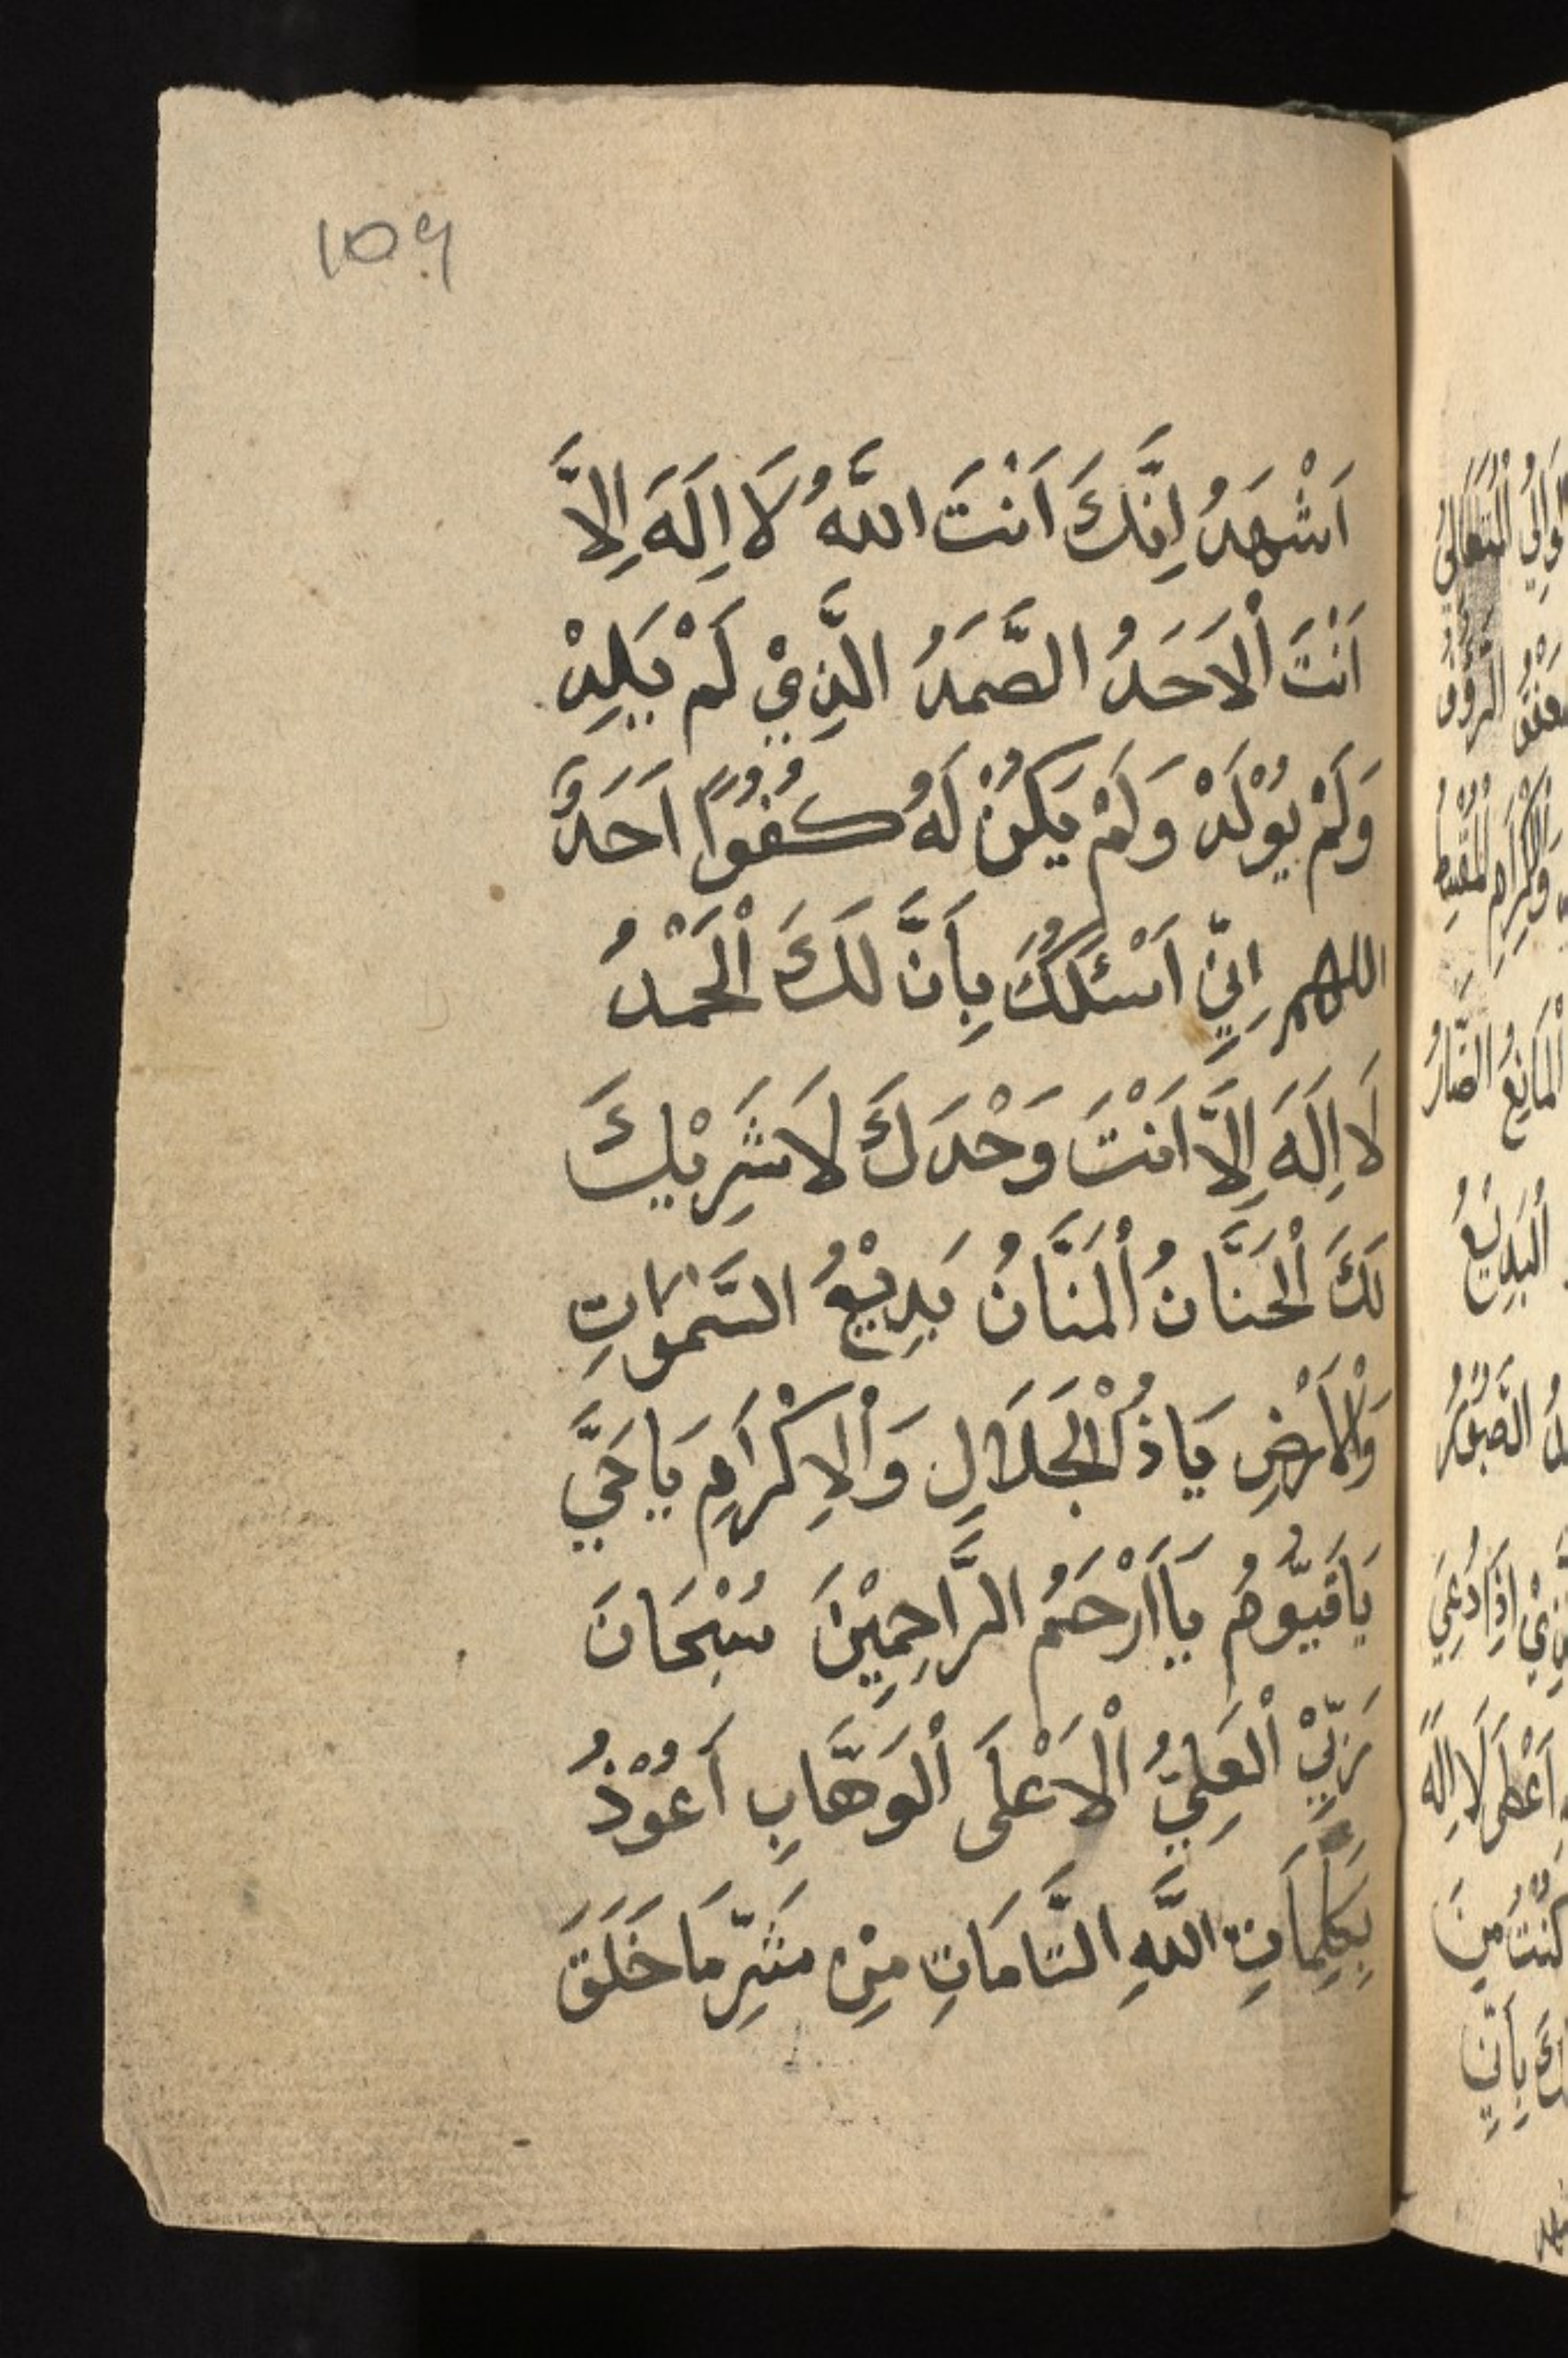 ١٥٩
اَشْهَدُ اِنَّكَ اَنْتَ اللَّهُ لَا اِلَهَ اِلاَّ
اَنْتَ اْلاَحَدُ الصَّمَدُ الَّذِيْ لَمْ يَلِدْ
وَلَمْ يُوْلَدْ وَلَمْ يَكُنْ لَهُ كُفُوًا اَحَدٌ
اللهم اِنِّي اَسْئَلُكَ بِأَنَّ لَكَ اْلحَمْدُ
لَا اِلَهَ اِلاَّ اَنْتَ وَحْدَكَ لَا شَرِيْكَ
لَكَ اْلحَنَّانُ اْلمَنَّانُ بَدِيْعُ السَّمٰوَاتِ
وَاْلاَرْضِ يَاذُاْلجَلاَلِ وَاْلاِكْرَامِ يَاحَيَّ
يَاقَيُّوْمُ يَااَرْحَمُ الرَّاحِمِيْنَ سُبْحَانَ
رَبِّيْ اْلعَلِيُّ اْلاَعْلَى اْلوَهَّابِ اَعُوْذُ
بِكَلِمَاتِ اللَّهِ التَّامَاتِ مِنْ شَرِّ مَا خَلَقَ